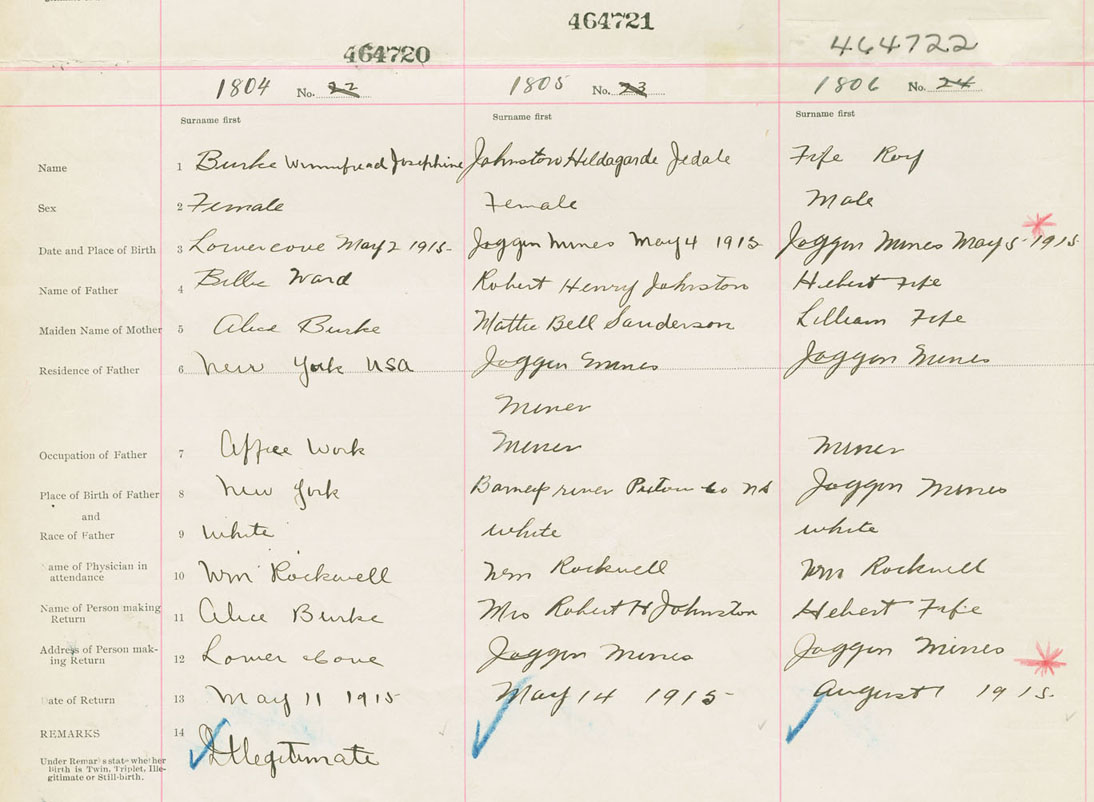 464720
464721
464722
1804 No. 22
1805 No. 23
1806 No. 24
Surname first
Surname first
Surname first
Name 1 Burke Winnifread Josephine Johnston Hildagarde Jedale Fife Roy
Sex 2 Female Female Male
Date and Place of Birth 3 Lowercove May 2 1915 Joggin Mines May 4 1915 Joggin Mines May 5 1915
Name of Father 4 Billie Ward Robert Henry Johnston Hebert Fife
Maiden Name of Mother 5 Alice Burke Mattie Bell Sanderson Lilliam Fife
Residence of Father 6 New York USA Joggin Mines Joggin Mines
Miner
Occupation of Father 7 Office Work Miner Miner
Place of Birth of Father 8 New York river Co NS Joggin Mines
and
Race of Father 9 White white white
Name of Physician in
attendance 10 Wm Rockwell Wm Rockwell Wm Rockwell
Name of Person making
Return 11 Alice Burke Mrs Robert H Johnston Hebert Fife
Address of Person mak-
ing Return 12 Lower Cove Joggin Mines Joggin Mines
Date of Return 13 May 11 1915 May 14 1915 August 1 1915.
REMARKS 14 Illegitimate
Under Remarks state whether
Birth is Twin, Triplet, Ille-
gitimate or Still-birth.